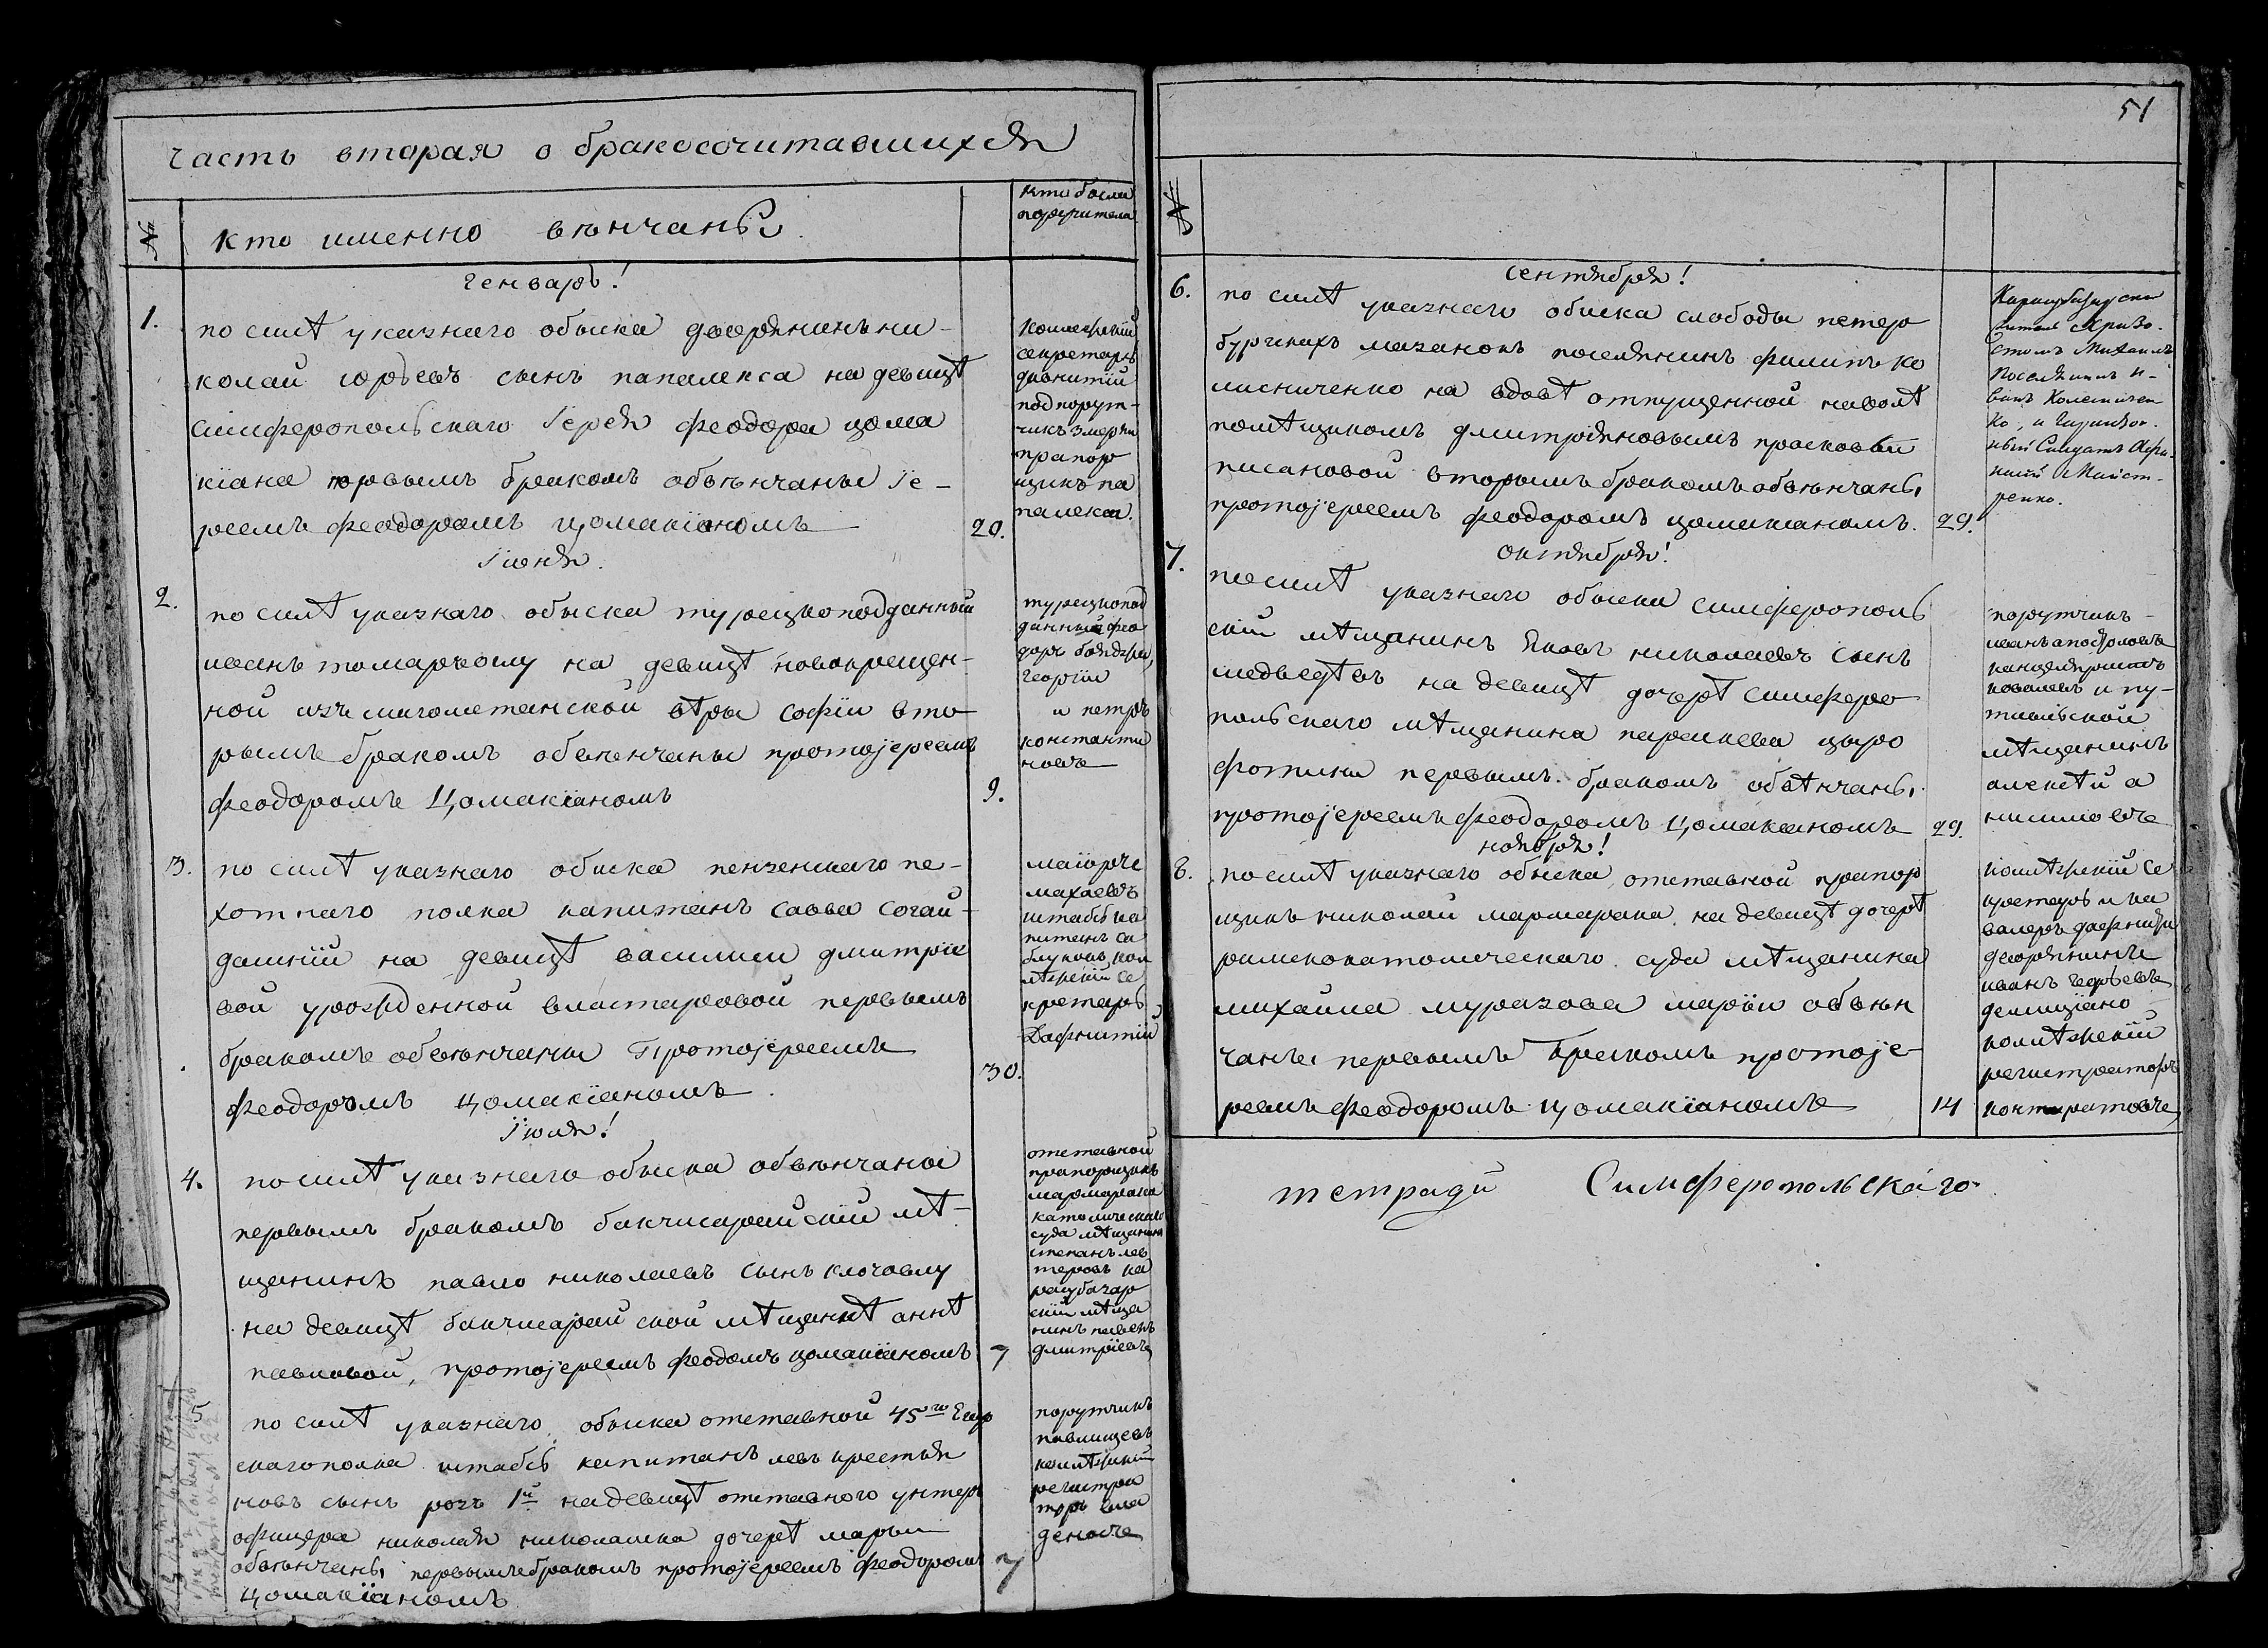 часть вторая о бракосочитавшихся
№
кто именно вѣнчаны
кто были
поручители
генварь!
1.
по силѣ указнаго обыска дворянинъ ни-
колай юрьевъ сынъ папалекса на девицѣ
симферопольскаго Іерея феодора цома
кіана первымъ бракомъ обвѣнчаны Іе-
реемъ феодоромъ цомакіаномъ
20.
секретарь
подпорут-
чикъ
прапор
щикъ па
палекса.
Іюня.
2.
по силѣ указнаго обыска турецкоподданный
иванъ томарчоглу на девицѣ новокрещен-
ной изъ магометанской вѣры софіи вто-
рымъ бракомъ обвенчаны протоіереемъ
феодоромъ Цомакіаномъ
9.
турецкопод
данный фео
доръ
георгіи
и петръ
константи
новъ
3.
по силѣ указнаго обыска пензенскаго пе-
хотнаго полка капитанъ савва согай-
дашній на девицѣ василии дмитріе
вой урожденной властаровой первымъ
бракомъ обвѣнчаны Протоіереемъ
феодоромъ цомакіаномъ.
30.
маіоръ
махаевъ
штабсъ ка
питанъ са
блуковъ, кол
лѣжскій се
кретарь
Дафнитій
Іюля!
4.
по силѣ указнаго обыска обвѣнчаны
первымъ бракомъ бакчисарайскій мѣ-
щанинъ павло николаевъ сынъ клочоглу
на девицѣ бакчисарайской мѣщанкѣ аннѣ
павловой, протоіереемъ феодомъ цомакіаномъ
7
отставной
прапорщикъ
мармараки
католическаго
суда мѣщанинъ
степанъ
ка
расубазар
скій мѣща
нинъ
дмитріевъ
5
по силѣ указнаго обыска отставной 45го Егер
скаго полка штабсъ капитанъ левъ крестья
новъ сынъ розъ 1й на девицѣ отставного унтеръ
офицера николая николашка дочерѣ марьи
обвѣнчаны первымъ бракомъ протоіереемъ феодоромъ
цомакіаномъ
7
порутчикъ
павлищевъ
коллѣжскій
регистра
торъ
51
№
сентября!
6.
по силѣ указнаго обыска слободы петер
бургскихъ мазанокъ поселянинъ филипъ ко
лисниченко на вдовѣ отпущенной на волѣ
помѣщикомъ дмитряновымъ прасковьи
писановой вторымъ бракомъ обвѣнчаны
протоіереемъ феодоромъ цомакіаномъ.
29.
Карасубазарскій
житель
Михаилъ
Поселянинъ И-
ванъ Колесничен
ко, и Гарнизон-
ный Салдатъ Афа-
насій
октября!
7.
по силѣ указнаго обыска симферополь
скій мѣщанинъ Яковъ николаевъ сынъ
медведѣвъ на девицѣ дочерѣ симферо
польскаго мѣщанина
фотини первымъ бракомъ обвѣнчаны
протоіереемъ феодоромъ Цомакіаномъ
29.
порутчикъ
иванъ апостоловъ
канцеляристъ
ковалевъ и пу-
тивльской
мѣщанинъ
алексѣй а
нисимовъ
ноября!
8.
по силѣ указнаго обыска отставной прапор
щикъ николай мармараки на девицѣ дочерѣ
римскокатолическаго суда мѣщанина
михайла муразова маріи обвѣн
чаны первымъ бракомъ протоіе-
реемъ феодоромъ цомакіаномъ
14
коллѣжскій се
кретарь и ка
валеръ
дворянинъ
иванъ георьевъ
коллѣжскій
регистраторъ
кондратовъ
тетради Симферопольскаго